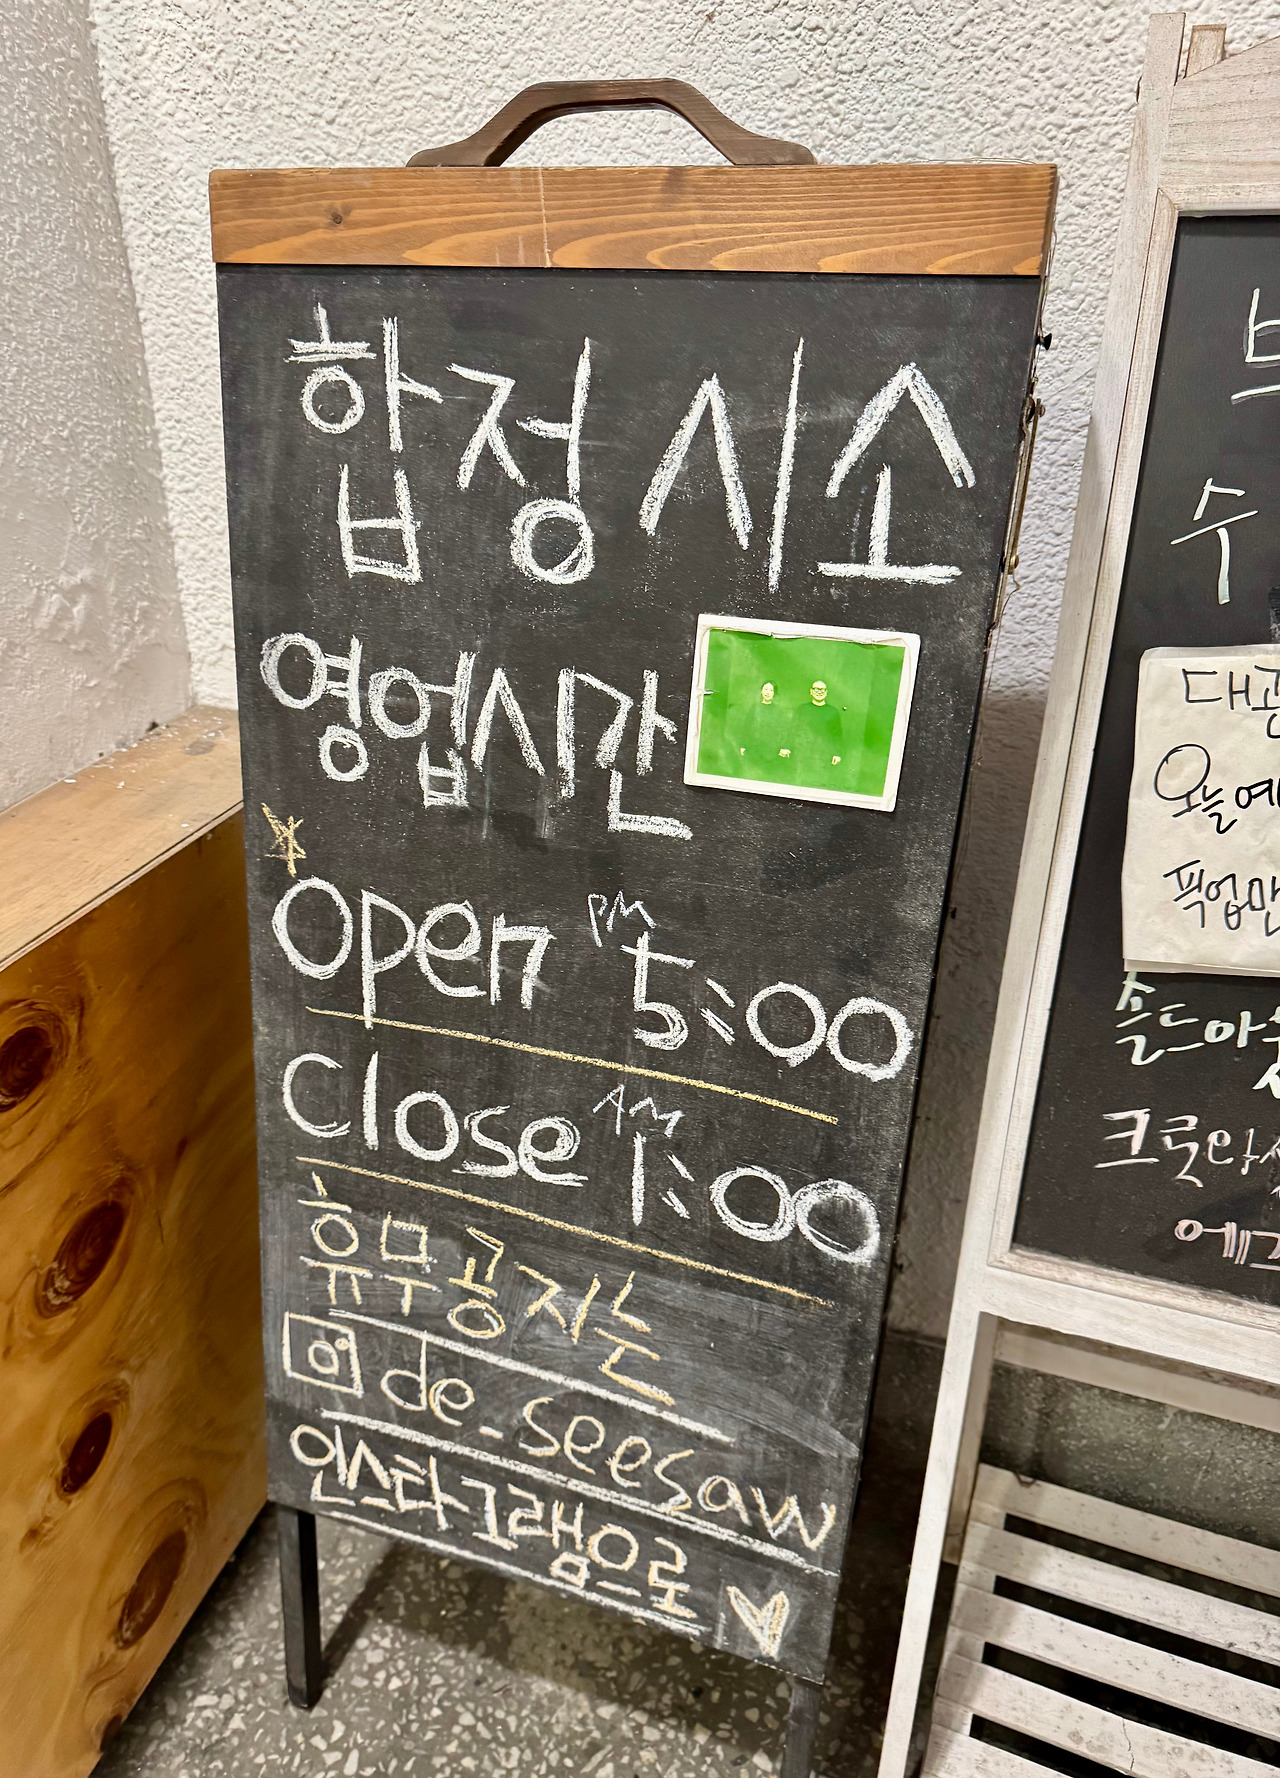 합정 시소
영업시간
Open PM 5:00
Close AM 1:00
휴무공지는
de_seesaw
인스타그램으로
수
오늘예
픽업만
솔드아웃
크룻아상
에그